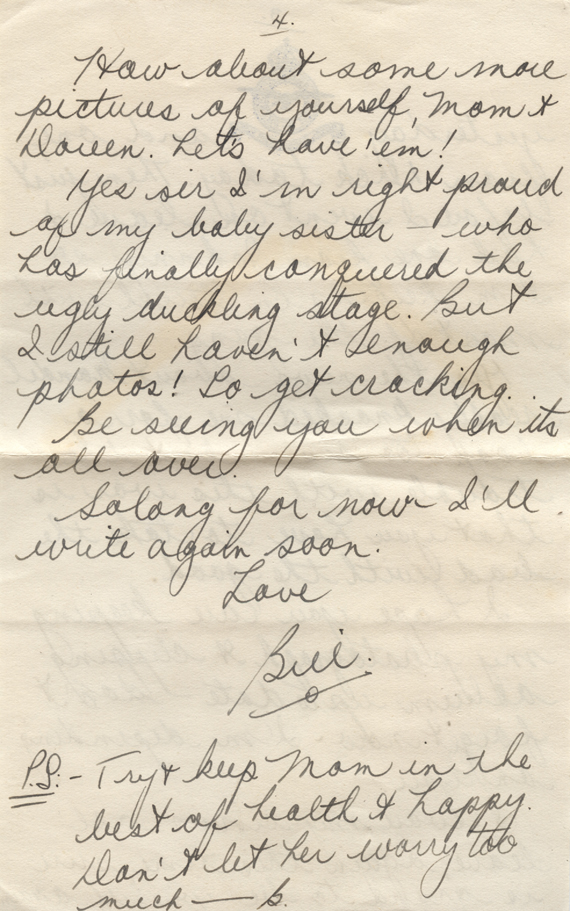 4.
How about some more
pictures of yourself, Mom &
Doreen. Let's have 'em!
Yes sir I'm right proud
of my baby sister – who
has finally conquered the
ugly duckling stage. But
I still haven't enough
photos! So get cracking.
Be seeing you when its
all over.
Solong for now I'll
write again soon.
Love
Bill.
P.S. - Try & keep Mom in the
best of health & happy.
Don't let her worry too
much — B.